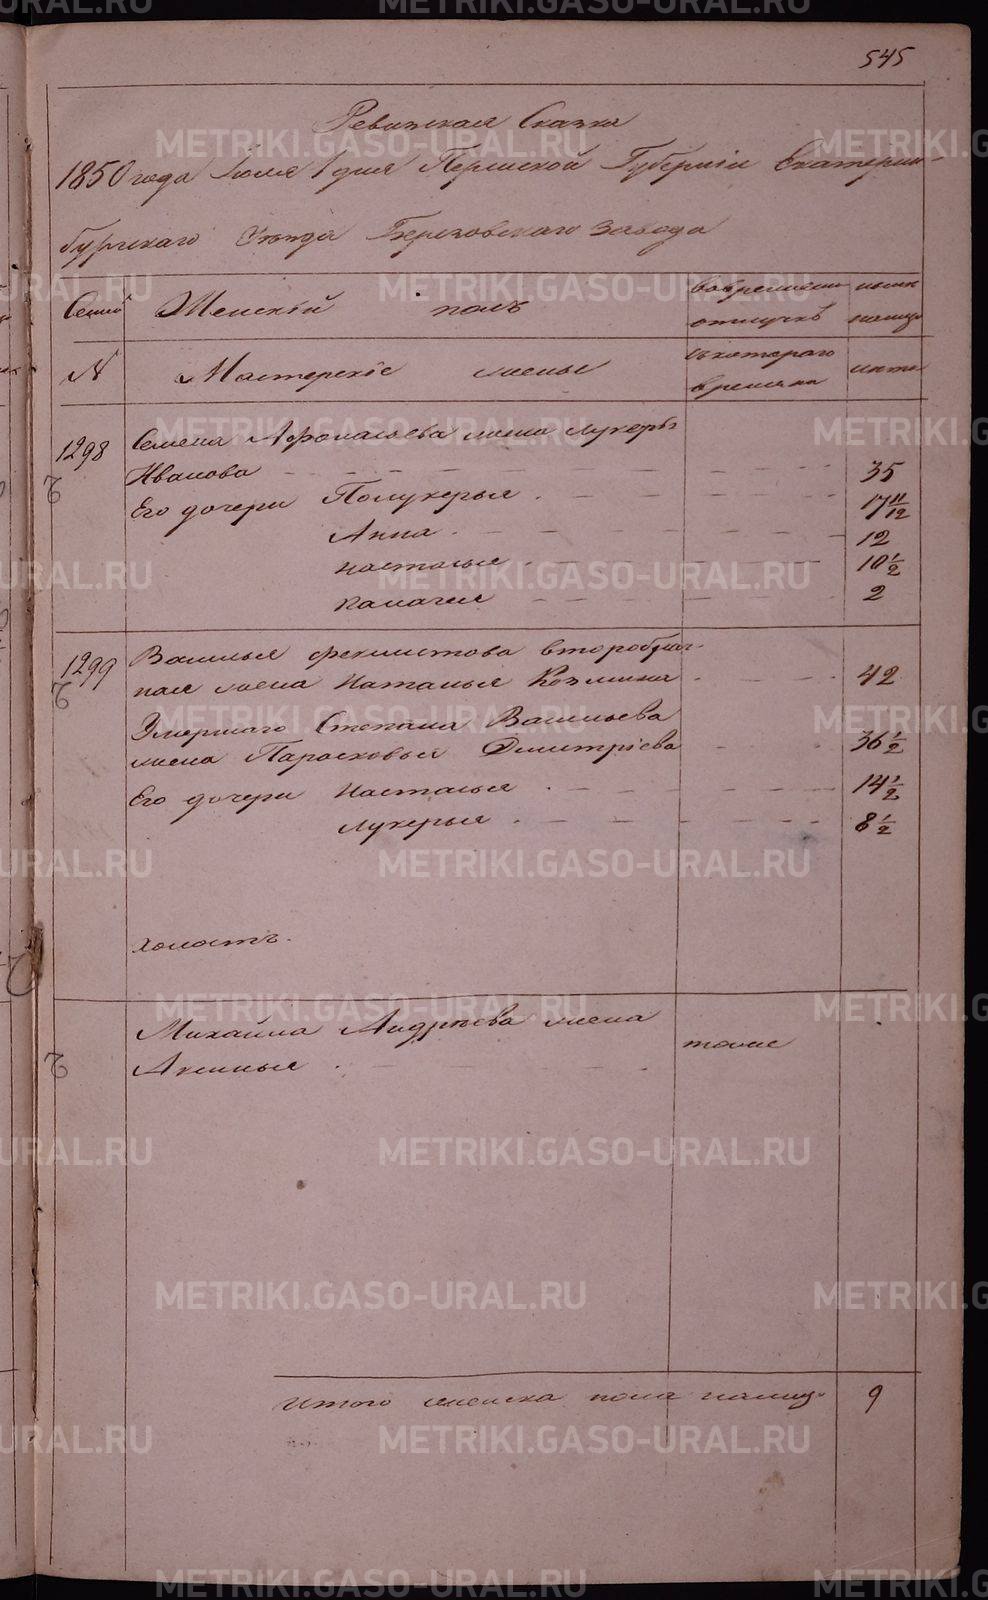 545
Ревизская Сказка
1850 года Июля 1 дня Пермской Губернии Екатерин-
бургскаго Уезда Березовскаго завода
Семей Женскій полъ вовременн. ныне
отлучкѣ налицо
N Мастерскіе жены съ котораго лѣта
времяни
1298 Семена Афонасьева жена Лукерья
Иванова 35
Его дочери Полукерья 17 11/12
Анна 12
Настасья 10 1/2
Палагея 2
1299 Василья Феклистова второбрач-
ная жена Наталья Козмина 42
Умершаго Степана Васильева
жена Парасковья Димитріева 36 1/2
Его дочери Настасья 14 1/2
Лукерья 8 1/2
холостъ.
Михайла Андрѣева жена
Аксинья
тоже
Итого женска пола налицо 9
METRIKI.GASO-URAL.RU